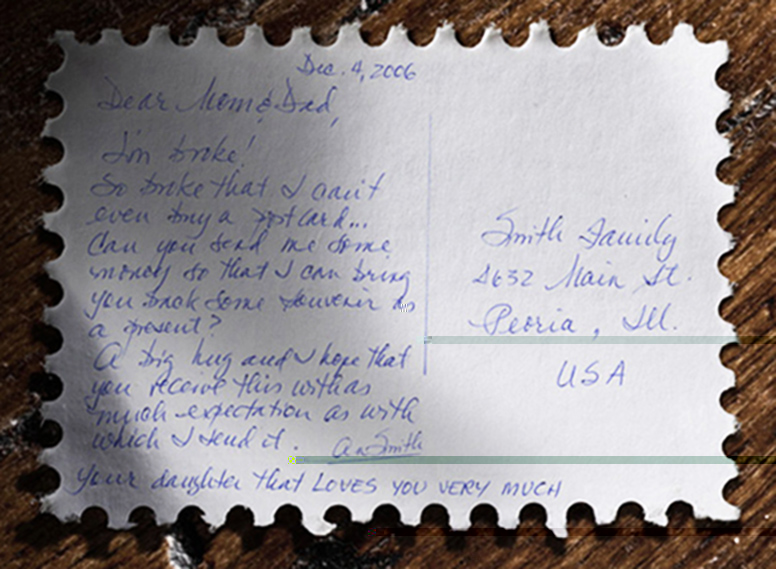 Dec. 4, 2006
Dear Mom & Dad,
I'm broke!
So broke that I can't
even buy a postcard...
Can you send me some
money so that I can bring
you back some souvenir as
a present?
A big hug and I hope that
you receive this with as
much expectation as with
which I send it.
Smith
Your daughter that LOVES YOU VERY MUCH
Smith Family
4632 Main St.
Peoria, Ill.
USA